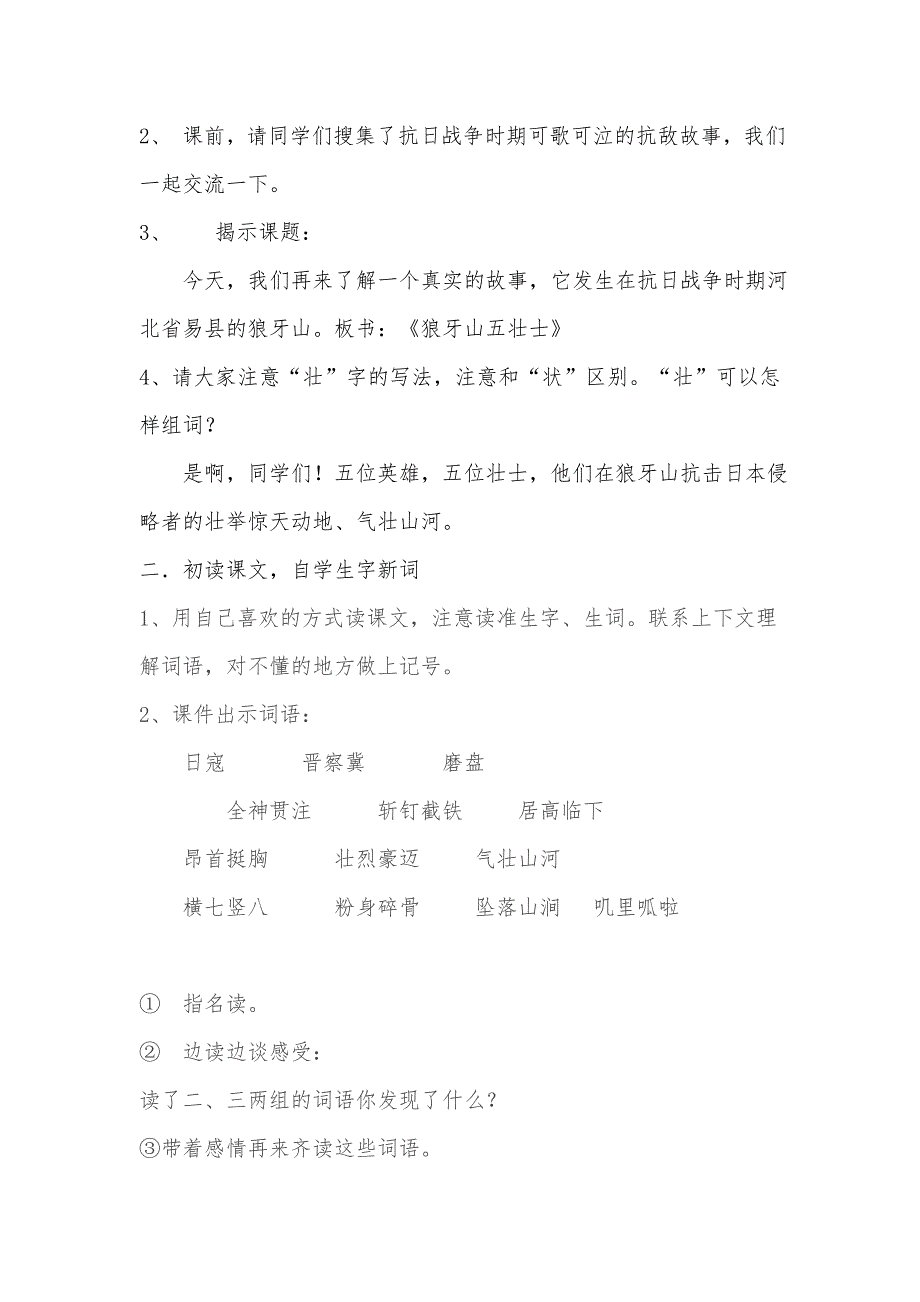 2、 课前，请同学们搜集了抗日战争时期可歌可泣的抗敌故事，我们
一起交流一下。
3、 揭示课题：
今天，我们再来了解一个真实的故事，它发生在抗日战争时期河
北省易县的狼牙山。板书：《狼牙山五壮士》
4、请大家注意“壮”字的写法，注意和“状”区别。“壮”可以怎
样组词？
是啊，同学们！五位英雄，五位壮士，他们在狼牙山抗击日本侵
略者的壮举惊天动地、气壮山河。
二．初读课文，自学生字新词
1、用自己喜欢的方式读课文，注意读准生字、生词。联系上下文理
解词语，对不懂的地方做上记号。
2、课件出示词语：
日寇 晋察冀 磨盘
全神贯注 斩钉截铁 居高临下
昂首挺胸 壮烈豪迈 气壮山河
横七竖八 粉身碎骨 坠落山涧 叽里呱啦
① 指名读。
② 边读边谈感受：
读了二、三两组的词语你发现了什么？
③带着感情再来齐读这些词语。